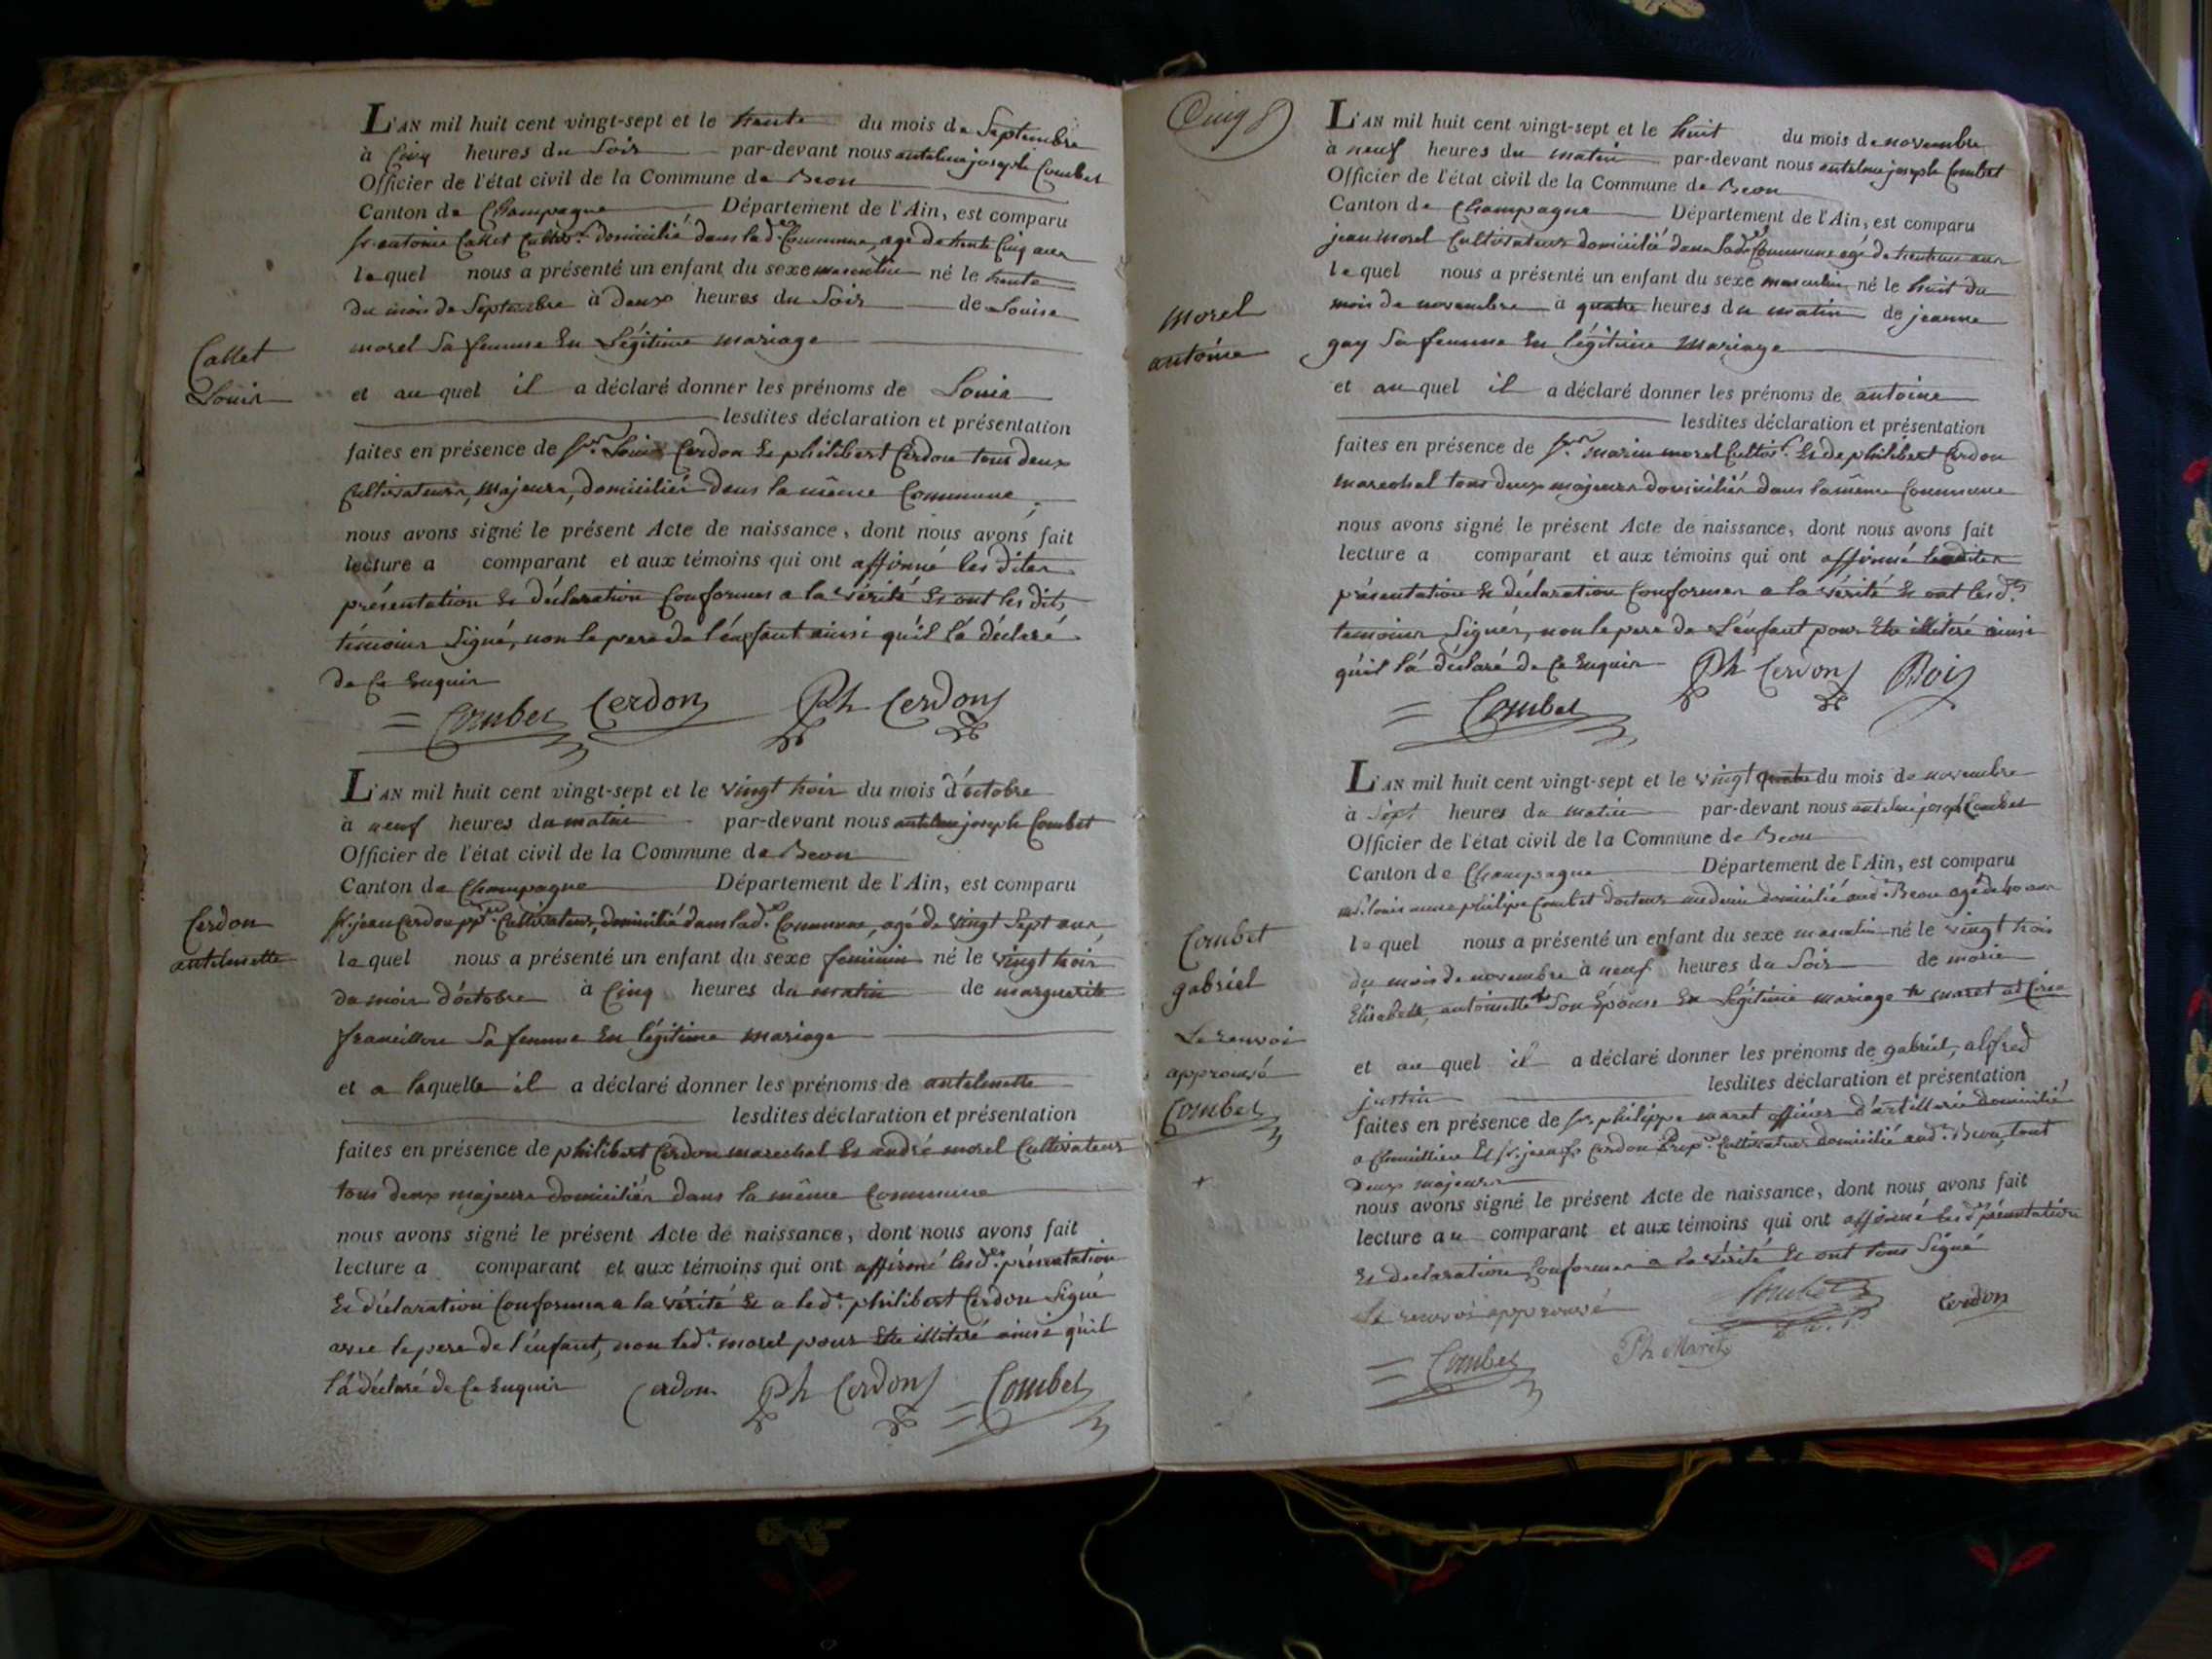 L'AN mil huit cent vingt-sept et le trente du mois de Septembre
à Cinq heures du Soir par-devant nous antelme joseph Combet
Officier de l'état civil de la Commune de Beon
Canton de Champagne Département de l'Ain, est comparu
sr. antoine Callet Cultivr. domicilié dans lade. Commune, agé de trente Cinq ans
lequel nous a présenté un enfant du sexe masculin né le trente
du mois de Septembre à deux heures du Soir de Louise
morel Sa femme En Légitime mariage
Callet
Louis
et auquel il a déclaré donner les prénoms de Louis
lesdites déclaration et présentation
faites en présence de srs. Louis Cerdon Et philibert Cerdon tous deux
Cultivateurs, majeurs, domiciliés dans la même Commune,
nous avons signé le présent Acte de naissance, dont nous avons fait
lecture a comparant et aux témoins qui ont affirmé les dites
présentation Et déclaration Conformes a la vérité Et ont les dits
témoins Signé, non le pere de l'énfant ainsi qu'il l'a déclaré
de Ce Enquis
Combet Cerdon Ph Cerdon
L'AN mil huit cent vingt-sept et le vingt trois du mois d'octobre
à neuf heures du matin par-devant nous antelme joseph Combet
Officier de l'état civil de la Commune de Beon
Canton de Champagne Département de l'Ain, est comparu
Cerdon
antelmette
sr. jean Cerdon ppre. Cultivateur, domicilié dans lade. Commune, agé de vingt Sept ans
lequel nous a présenté un enfant du sexe feminin né le vingt trois
du mois d'octobre à Cinq heures du matin de marguerite
francillon Sa femme En légitime mariage
et a laquelle il a déclaré donner les prénoms de antelmette
lesdites déclaration et présentation
faites en présence de philibert Cerdon marechal Et andré morel Cultivateur
tous deux majeurs domiciliés dans la même Commune
nous avons signé le présent Acte de naissance, dont nous avons fait
lecture a comparant et aux témoins qui ont affirmé lesdes. présentation
Et déclaration Conformes a la vérité Et a led. philibert Cerdon Signé
avec le pere de l'énfant, non led. morel pour Etre illiteré ainsi qu'il
l'a déclaré de Ce Enquis Cerdon Ph Cerdon Combet
Cinq
L'AN mil huit cent vingt-sept et le huit du mois de novembre
à neuf heures du matin par-devant nous antelme joseph Combet
Officier de l'état civil de la Commune de Beon
Canton de Champagne Département de l'Ain, est comparu
jean morel Cultivateur domicilié dans lade. Commune agé de trente un ans
lequel nous a présenté un enfant du sexe masculin né le huit du
mois de novembre à quatre heures du matin de jeanne
gay Sa femme En légitime Mariage
morel
antoine
et auquel il a déclaré donner les prénoms de antoine
lesdites déclaration et présentation
faites en présence de srs. marin morel Cultivr. Et de philibert Cerdon
marechal tous deux majeurs domiciliés dans la même Commune
nous avons signé le présent Acte de naissance, dont nous avons fait
lecture a comparant et aux témoins qui ont affirmé lesdites
présentation Et déclaration Conformes a la vérité Et ont lesds.
temoins Signés, non le pere de L'énfant pour Etre illiteré ainsi
qu'il l'a déclaré de Ce Enquis Ph Cerdon
Combet
L'AN mil huit cent vingt-sept et le vingt quatre du mois de novembre
à Sept heures du matin par-devant nous antelme joseph Combet
Officier de l'état civil de la Commune de Beon
Canton de Champagne Département de l'Ain, est comparu
mr. louis philipe Combet docteur medecin domicilié aud. Beon agé de 40 ans
lequel nous a présenté un enfant du sexe masculin né le vingt trois
du mois de novembre à neuf heures du Soir de marie
Elisabeth, antoinette + Son Epouse En Légitime mariage + maret
Combet
gabriel
Le renvoi
approuvé
Combet
+
et auquel il a déclaré donner les prénoms de gabriel, alfred
justin lesdites déclaration et présentation
faites en présence de sr. philippe maret officier d'artillerie domicilié
a Et sr. Cerdon Propre. Cultivateur domicilié aud. Beon, tous
deux majeurs
nous avons signé le présent Acte de naissance, dont nous avons fait
lecture au comparant et aux témoins qui ont affirmé lesdes. présentation
Et déclaration Conformes a la vérité Et ont tous Signé
Le renvoi approuvé Combet Cerdon
Combet Ph Maret